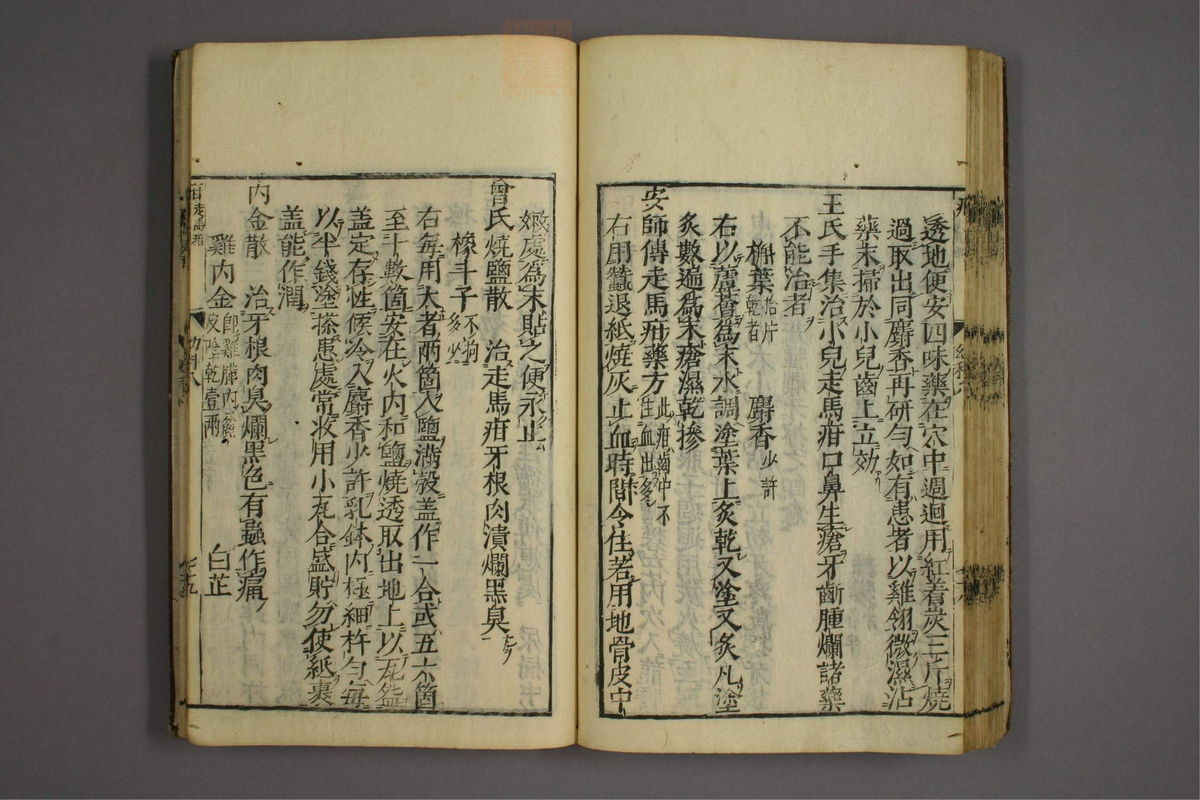 透地便安四味藥在穴中週迴用紅着炭三斤燒
過取出同麝香再研勻如有患者以雞翎微濕沾
藥末掃於小兒齒上立効
王氏手集治小兒走馬疳口鼻生瘡牙齗腫爛諸藥
不能治者
槲葉拾片乾者 麝香少許
右以蘆薈爲末水調塗葉上炙乾又塗又炙凡塗
炙數遍爲末瘡濕乾摻
安師傳走馬疳藥方此疳齒中不住血出多
右用蠶退紙燒灰止血時間令住若用地骨皮中
嫩處爲末貼之便永止
曾氏燒鹽散 治走馬疳牙根肉潰爛黑臭
橡斗子不拘多少
右每用大者兩箇入鹽滿殼盖作一合或五六箇
至十數箇安在火内和鹽燒透取出地上以瓦盆
盖定存性候冷入麝香少許乳鉢内極細杵勻每
以半錢塗搽患處常收用小瓦合盛貯勿使紙裹
盖能作潤
内金散 治牙根肉臭爛黑色有蟲作痛
雞内金皮陰乾壹兩 白芷
走馬疳